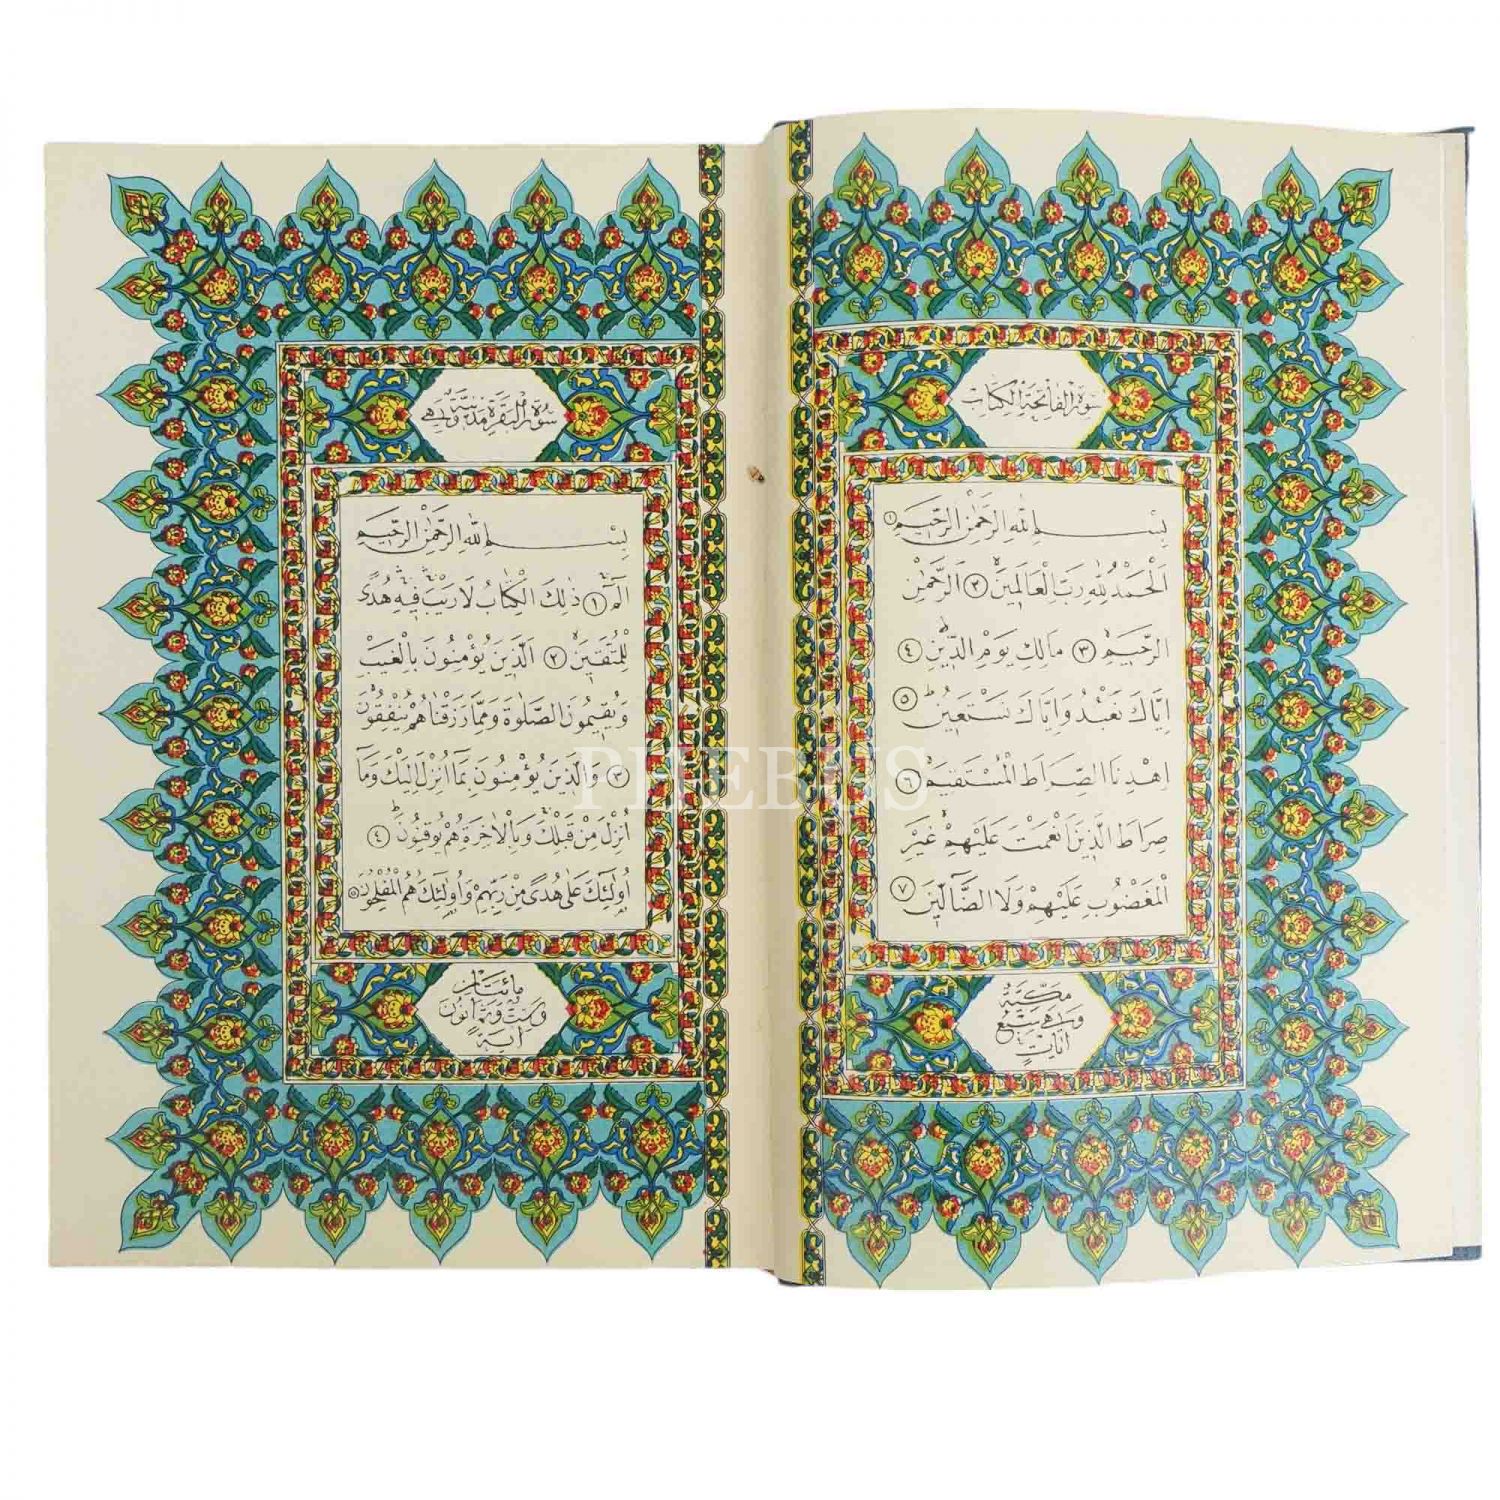 سورة الفاتحة الكتاب
بِسْمِ اللهِ الرَّحْمٰنِ الرَّحِيمِ ١
اَلْحَمْدُ لِلّٰهِ رَبِّ الْعَالَمِينَ ٢ اَلرَّحْمٰنِ
الرَّحِيمِ ٣ مَالِكِ يَوْمِ الدِّينِ ٤
اِيَّاكَ نَعْبُدُ وَاِيَّاكَ نَسْتَعِينُ ٥
اِهْدِنَا الصِّرَاطَ الْمُسْتَقِيمَ ٦
صِرَاطَ الَّذِينَ اَنْعَمْتَ عَلَيْهِمْ غَيْرِ
الْمَغْضُوبِ عَلَيْهِمْ وَلَا الضَّٓالِّينَ ٧
مكية
وهي سبع
آيات
سورة البقرة مدنية وهي
بِسْمِ اللهِ الرَّحْمٰنِ الرَّحِيمِ
الٓمٓ ١ ذٰلِكَ الْكِتَابُ لَا رَيْبَ فِيهِ هُدًى
لِلْمُتَّقِينَ ٢ اَلَّذِينَ يُؤْمِنُونَ بِالْغَيْبِ
وَيُقِيمُونَ الصَّلٰوةَ وَمِمَّا رَزَقْنَاهُمْ يُنْفِقُونَ
٣ وَالَّذِينَ يُؤْمِنُونَ بِمَٓا اُنْزِلَ اِلَيْكَ وَمَٓا
اُنْزِلَ مِنْ قَبْلِكَ وَبِالْاٰخِرَةِ هُمْ يُوقِنُونَ ٤
اُولٰٓئِكَ عَلٰى هُدًى مِنْ رَبِّهِمْ وَاُولٰٓئِكَ هُمُ الْمُفْلِحُونَ ٥
مائتان
وست وثمانون
آية
PHEBUS